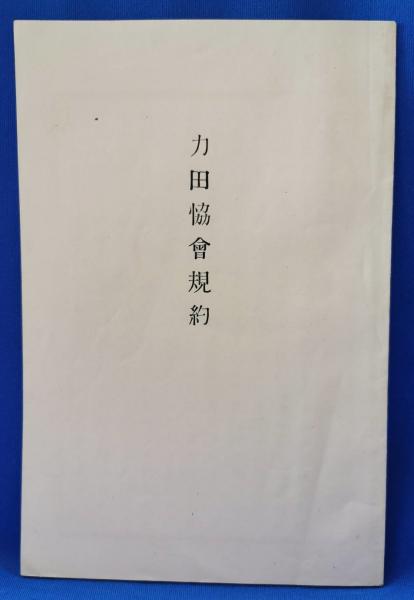 力田恊會規約